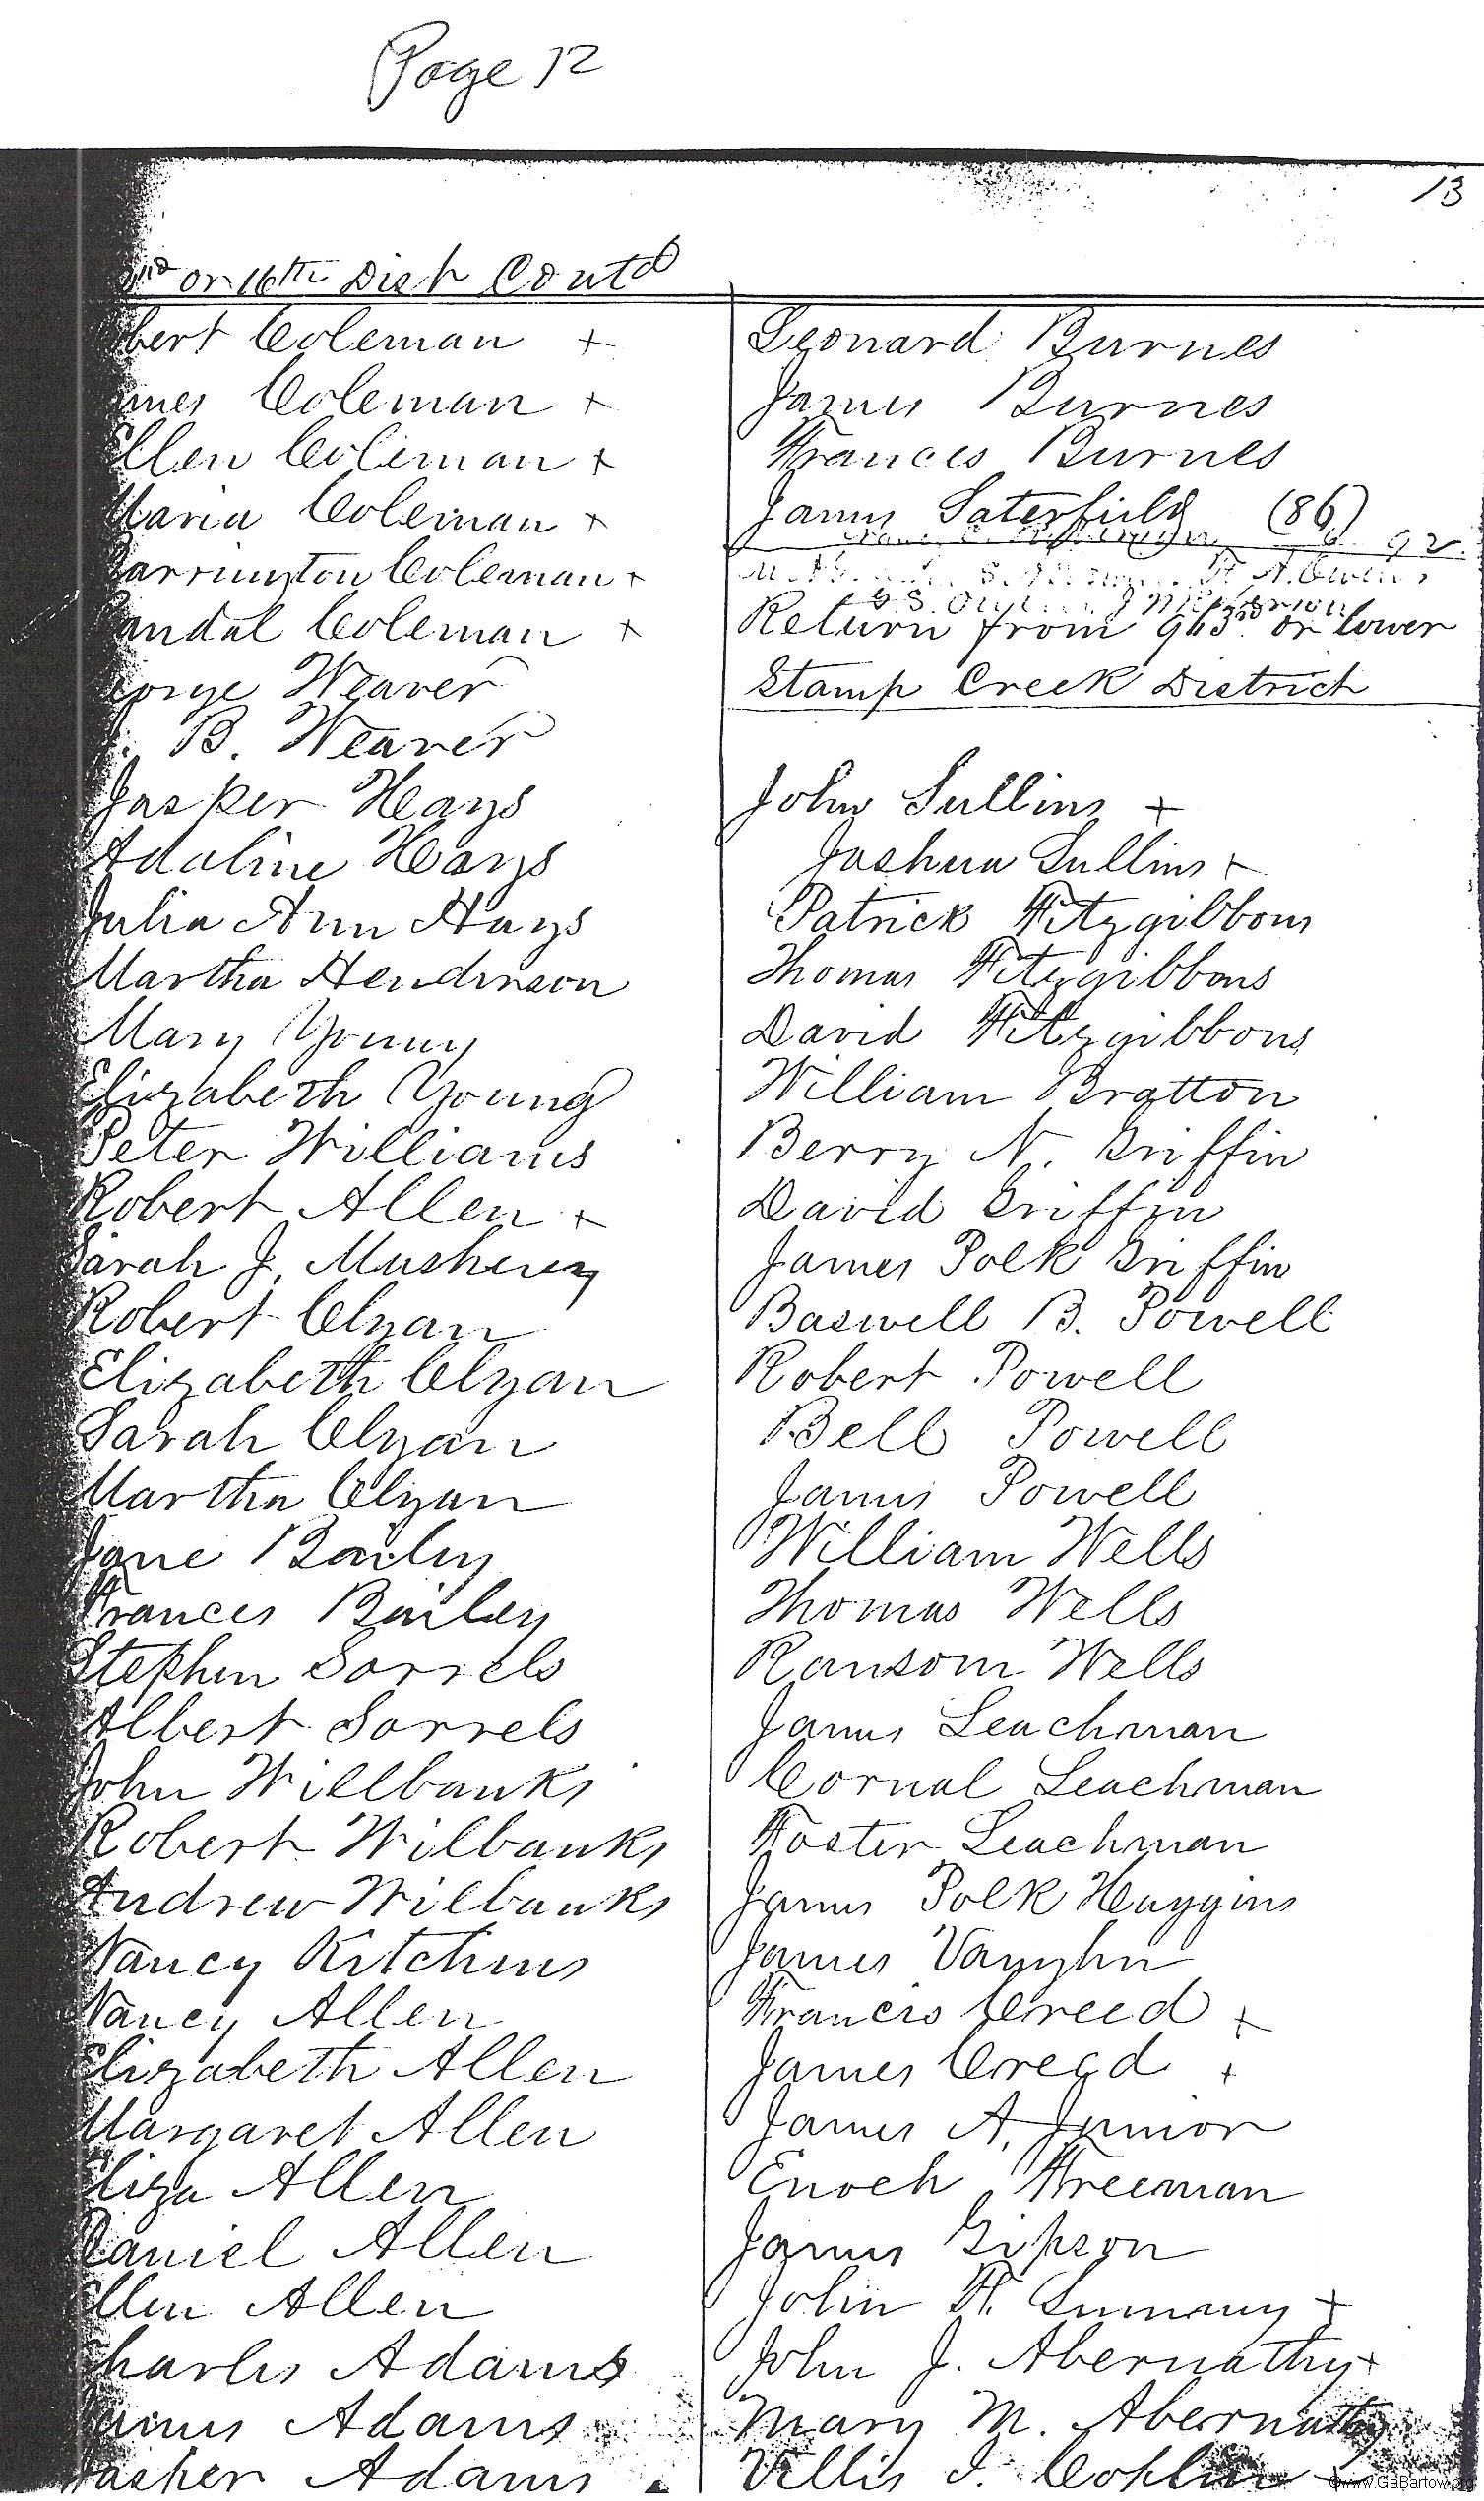 Page 12
13
or 16th Dist Contd
bert Coleman +
mes Coleman +
Ellen Coleman +
Maria Coleman +
Barrington Coleman +
andal Coleman +
eorge Weaver
B. Weaver
Jasper Hays
Adaline Hays
Julia Ann Hays
Martha Henderson
Mary Young
Elizabeth Young
Peter Williams
Robert Allen +
Sarah J.
Robert Clyan
Elizabeth Clyan
Sarah Clyan
Martha Clyan
Jane Bailey
Frances Bailey
Stephen Sorrels
Albert Sorrels
John Willbanks
Robert Wilbanks
Andrew Wilbanks
Nancy Kitchins
Nancy Allen
Elizabeth Allen
Margaret Allen
Eliza Allen
Daniel Allen
Ellen Allen
Charles Adams
James Adams
Adams
Leonard Burnes
James Burnes
Frances Burnes
James Saterfield (86)
92
Return from 963rd or lower
Stamp Creek District
John Sullins +
Joshua Sullins +
Patrick Fitzgibbons
Thomas Fitzgibbons
David Fitzgibbons
William Bratton
Berry N. Griffin
David Griffin
James Polk Griffin
Baswell B. Powell
Robert Powell
Bell Powell
James Powell
William Wells
Thomas Wells
Ransom Wells
James Leachman
Cornal Leachman
Foster Leachman
James Polk Huggins
James Vaughn
Francis Creed +
James Creed +
James A. Junior
Enoch Freeman
James Gipson
John F. Summy +
John J. Abernathy +
Mary M. Abernathy
Villis I.
©www.GaBartow.org